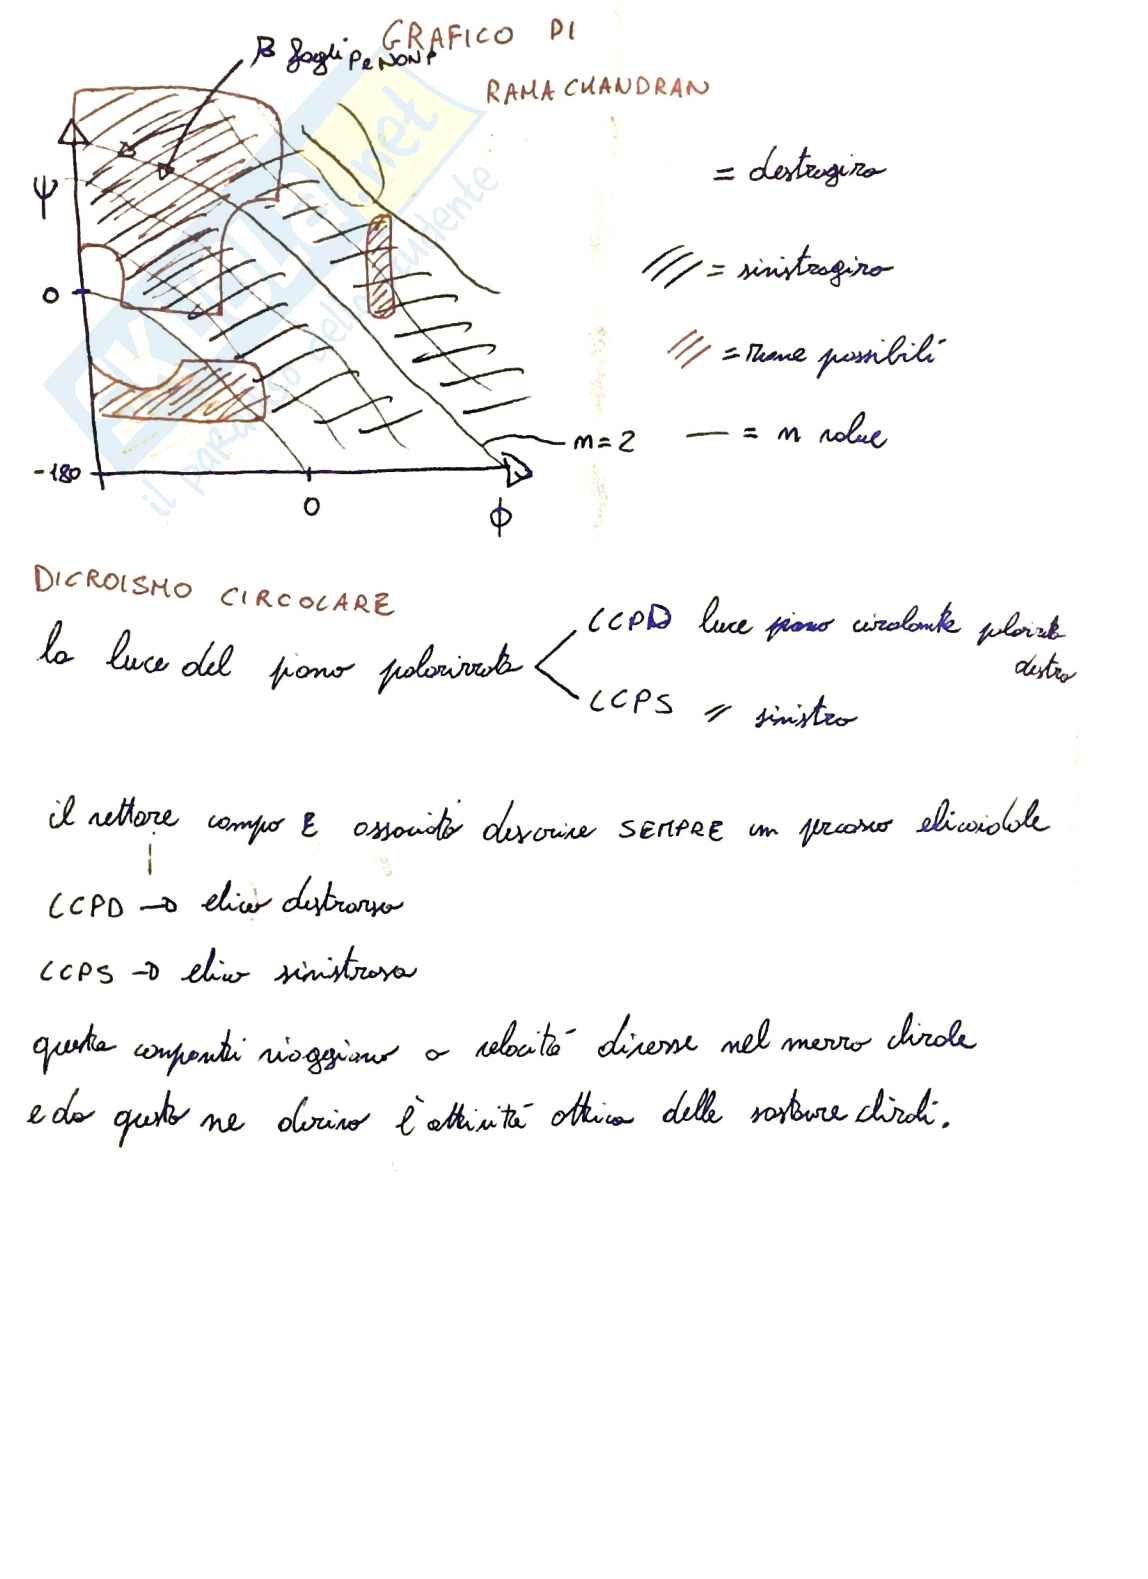 GRAFICO DI
RAMACHANDRAN
β fogli P e NON P
ψ
0
-180
0
ϕ
n=2
= destrogiro
/// = sinistrogiro
/// = zone possibili
— = n value
SKUOLA.net
il paradiso dello studente
DICROISMO CIRCOLARE
la luce del piano polarizzata
LCPD luce piano circolante polarizzata
destra
LCPS " sinistra
il vettore campo E associato descrive SEMPRE un percorso elicoidale
LCPD → elica destrorsa
LCPS → elica sinistrorsa
queste componenti viaggiano a velocità diverse nel mezzo chirale
e da questo ne deriva l'attività ottica delle sostanze chirali.